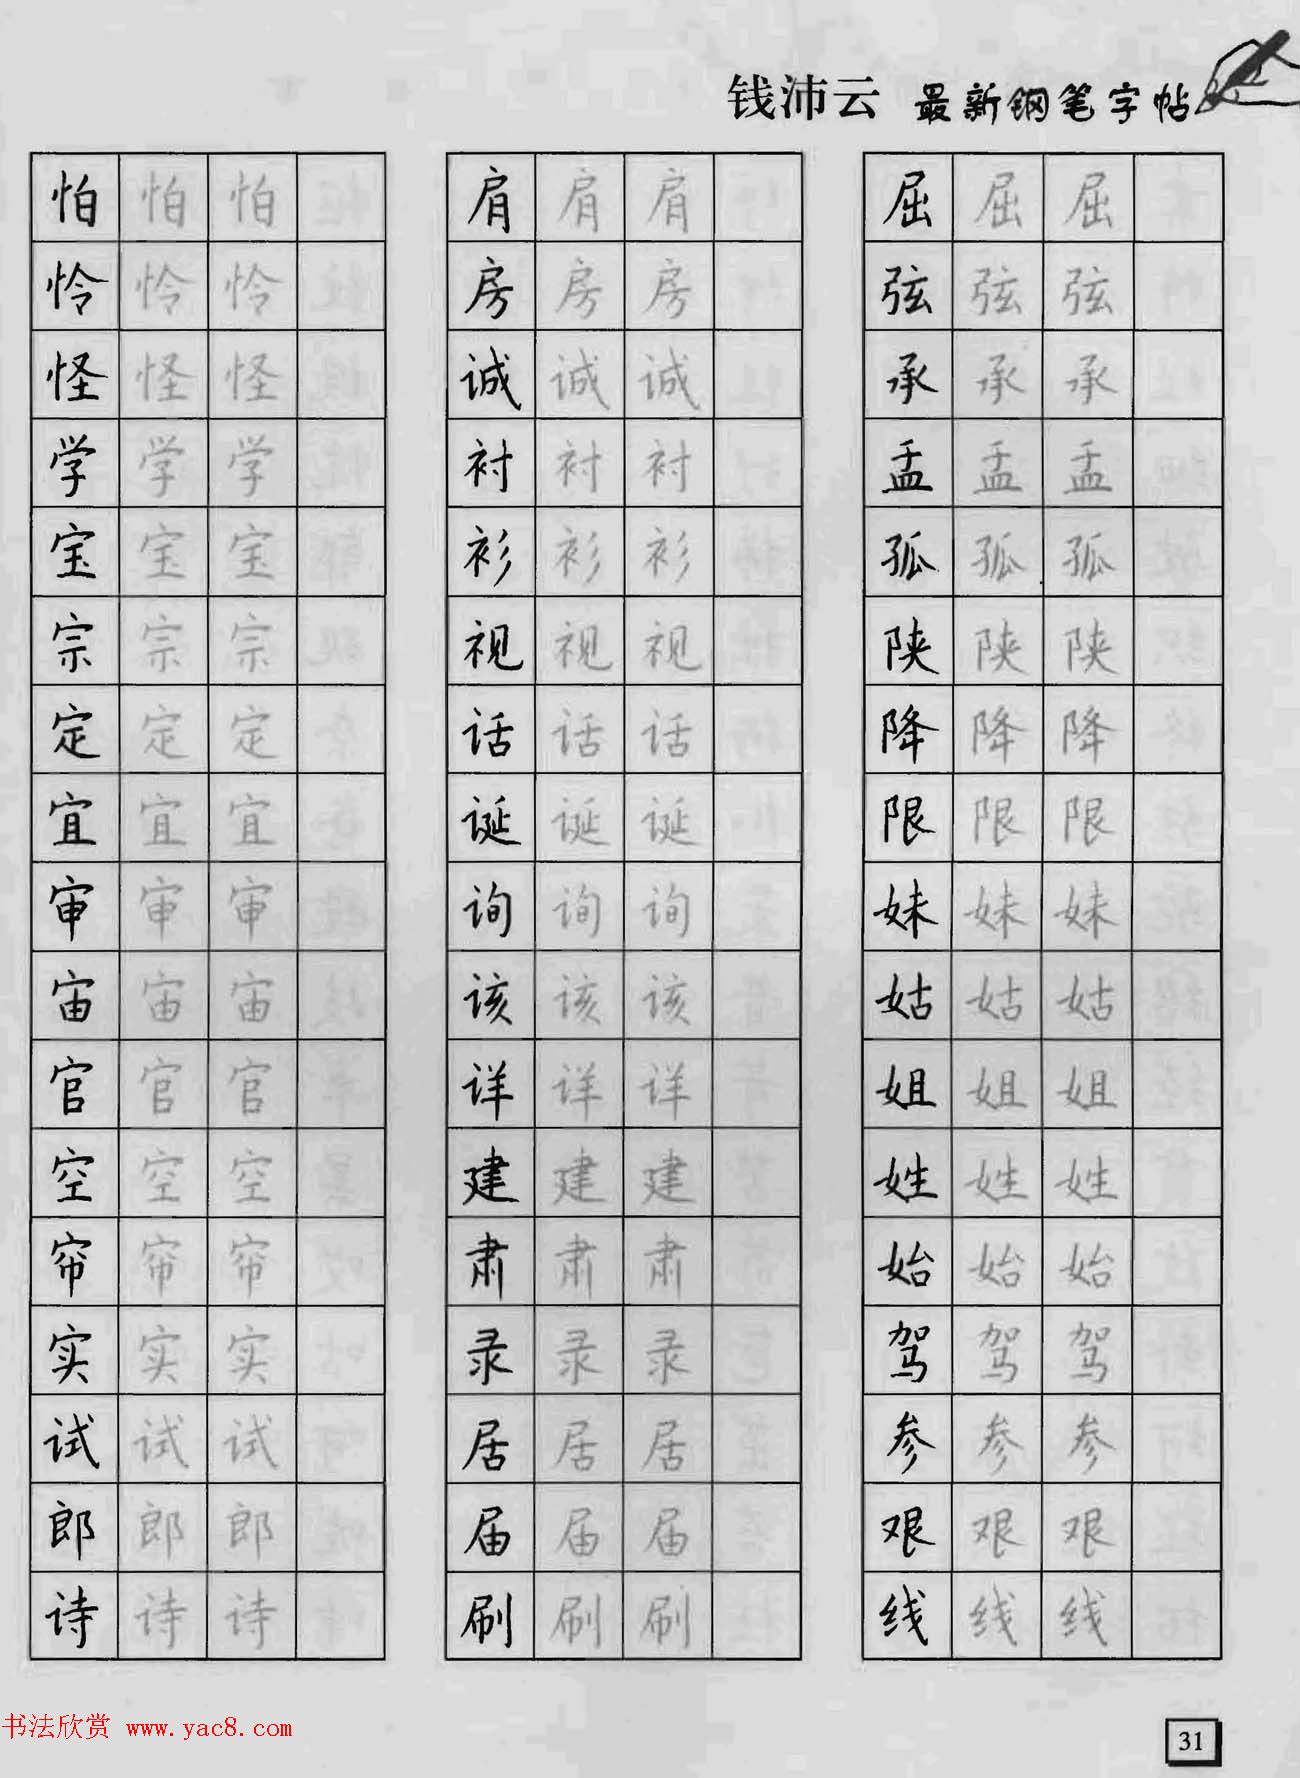 钱沛云 最新钢笔字帖
怕 怕 怕 肩 肩 肩 屈 屈 屈
怜 怜 怜 房 房 房 弦 弦 弦
怪 怪 怪 诚 诚 诚 承 承 承
学 学 学 衬 衬 衬 孟 孟 孟
宝 宝 宝 衫 衫 衫 孤 孤 孤
宗 宗 宗 视 视 视 陕 陕 陕
定 定 定 话 话 话 降 降 降
宜 宜 宜 诞 诞 诞 限 限 限
审 审 审 询 询 询 妹 妹 妹
宙 宙 宙 该 该 该 姑 姑 姑
官 官 官 详 详 详 姐 姐 姐
空 空 空 建 建 建 姓 姓 姓
帘 帘 帘 肃 肃 肃 始 始 始
实 实 实 录 录 录 驾 驾 驾
试 试 试 居 居 居 参 参 参
郎 郎 郎 届 届 届 艰 艰 艰
诗 诗 诗 刷 刷 刷 线 线 线
书法欣赏 www.yac8.com
31